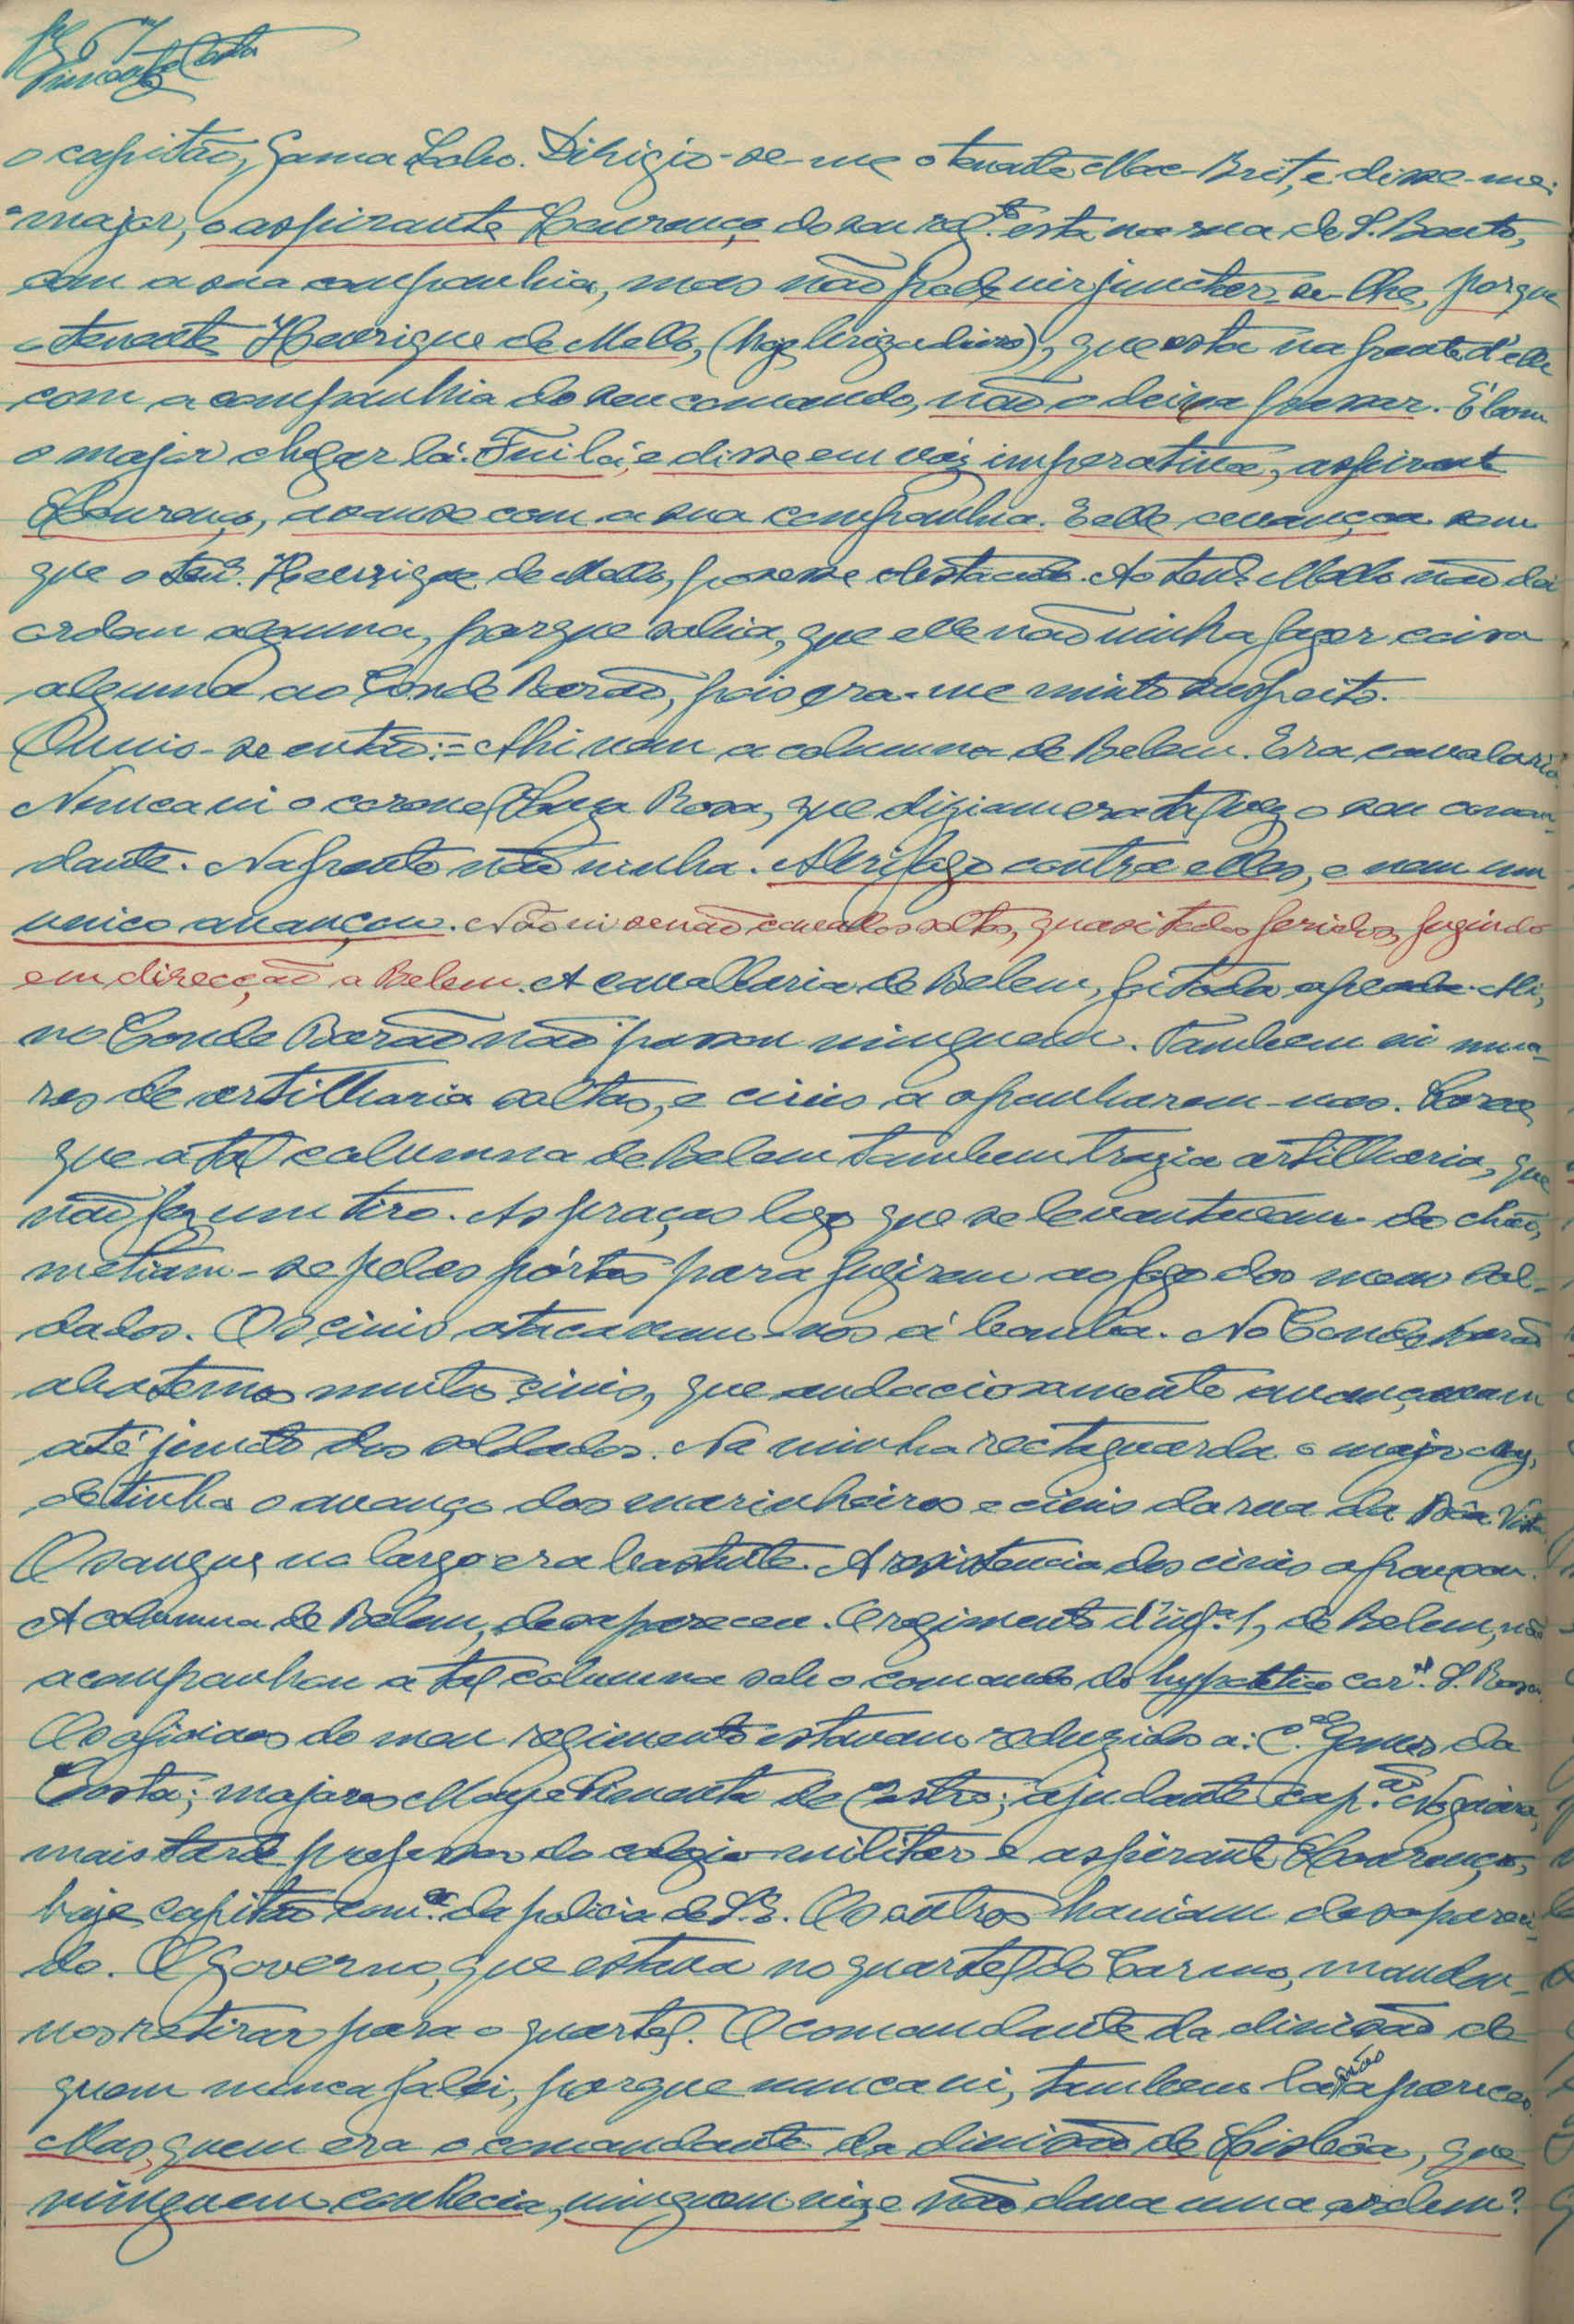 o capitão, Gama Lobo. Dirigio-se-me o tenente Mac-Brit, e disse-me:
"major, o aspirante Lourenço do seu reg.to está na rua de S. Bento,
com a sua companhia, mas não pode vir junctar-se-lhe, porque
o tenente Henrique de Mello, (hoje brigadeiro), que está na frente d'elle
com a companhia do seu comando, não o deixa passar. É bom
o major chegar lá. Fui lá, e disse em vóz imperativa, aspirante
Lourenço, avanse com a sua companhia. E elle avançou sem
que o ten.e Henrique de Mello, posesse obstaculo. Ao ten.e Mello não dei
ordem alguma, porque sabia, que elle não vinha fazer coisa
alguma ao Conde Barão, pois era-me muito suspeito.
Ouvio-se então:= Ahi vem a columna de Belem. Era cavalaria.
Nunca vi o coronel Roza, que diziam era talvez o seu coman-
dante. Na frente não vinha. Abri fogo contra elles, e nem um
unico avançou. Não vi senão cavallos soltos, quasi todos feridos, fugindo
em direcção a Belem. A cavallaria de Belem, foi toda apeada. Ali,
no Conde Barão não passou ninguem. Tambem vi mua-
res de artilharia soltas, e civis a apanharem-nas. Parece,
que a tal columna de Belem tambem trazia artilharia, que
não fez um tiro. As praças logo que se levantavam do chão,
metiam-se pelas pórtas para fugirem ao fogo dos meus sol-
dados. Os civis atacavam-nos á bomba. No Conde Barão
abatemos muitos civis, que audaciosamente avançavam
até juncto dos soldados. Na minha rectaguarda o major May,
detinha o avanço dos marinheiros e civis da rua da Bôa Vista
O sangue no largo era bastante. A resistencia dos civis afrouxou.
A columna de Belem, desapareceu. O regimento d'inf.a 1, de Belem, não
acompanhou a tal columna sob o comando do hypotetico cor.el S. Rosa.
Os oficiaes do meu regimento estavam reduzidos a: C.el Gomes da
Costa; majores May e Pimenta de Castro; ajudante cap.ão Nogueira,
mais tarde professor do colegio militar e aspirante Lourenço,
hoje capitão com.e da policia de S. E. Os outros haviam desapareci-
do. O Governo, que estava no quartel do Carmo, mandou-
nos retirar para o quartel. O comandante da divisão de
quem nunca falei, porque nunca vi, tambem lá não apareceu.
Mas, quem era o comandante da divisão de Lisbôa, que
ninguem conhecia, ninguem viu, e não dava uma ordem?